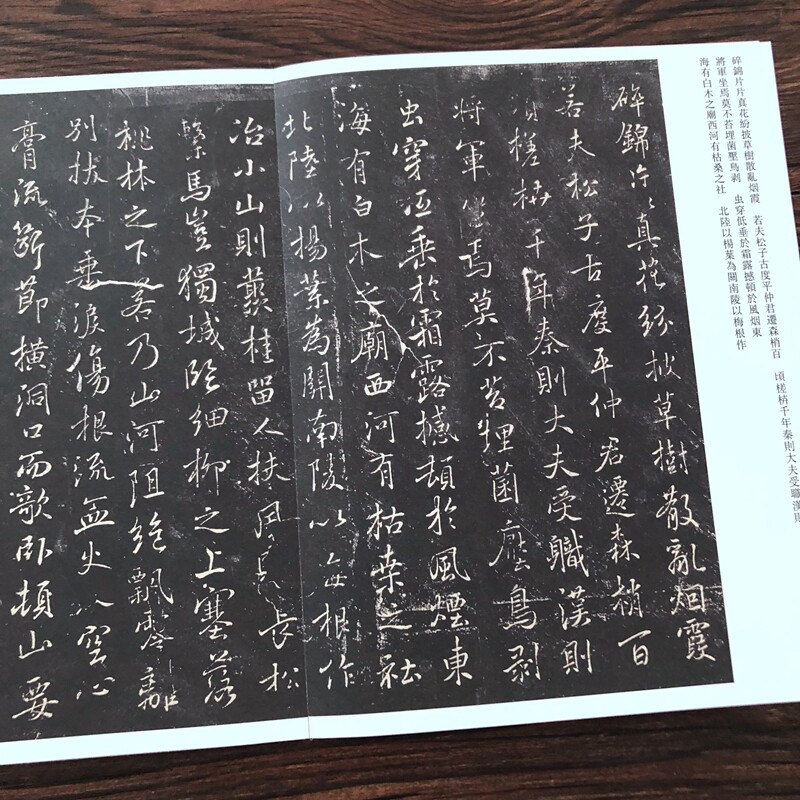 碎錦片片真花紛披草樹散亂烟霞　若夫松子古度平仲君遷森梢百　頃槎枿千年秦則大夫受職漢則
將軍坐焉莫不苔埋菌壓鳥剥　虫穿低垂於霜露撼頓於風烟東
海有白木之廟西河有枯桑之社　北陸以楊葉為關南陵以梅根作
碎錦片々真花紛披草樹散亂烟霞
若夫松子古度平仲君遷森梢百
頃槎枿千年秦則大夫受職漢則
將軍坐焉莫不苔埋菌壓鳥剥
虫穿仾垂於霜露撼頓於風煙東
海有白木之廟西河有枯桑之社
北陸以楊葉為關南陵以梅根作
冶小山則叢桂留人扶風則長松
繫馬豈獨城臨細柳之上塞落
桃林之下若乃山河阻絶飄零離
別拔本垂淚傷根流血火入空心
膏流斷節橫洞口而欹卧頓山要